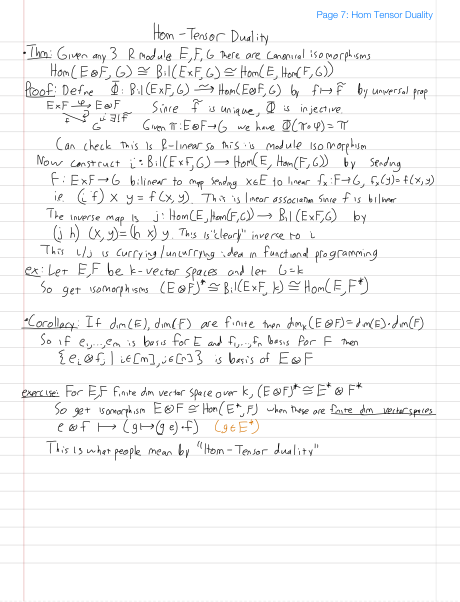 Page 7: Hom Tensor Duality
Hom-Tensor Duality
• Thm: Given any 3 R module E, F, G there are canonical isomorphisms
Hom(E⊗F, G) ≅ Bil(E×F, G) ≅ Hom(E, Hom(F, G))
Proof: Define Φ: Bil(E×F, G) ⟶ Hom(E⊗F, G) by f ↦ f̃ by universal prop
E×F –φ→ E⊗F Since f̃ is unique, Φ is injective.
G ∃! f̃ Given π: E⊗F → G we have Φ(π∘φ) = π
Can check this is R-linear so this is module isomorphism
Now construct i: Bil(E×F, G) ⟶ Hom(E, Hom(F, G)) by sending
f: E×F → G bilinear to map sending x∈E to linear fₓ: F→G, fₓ(y) = f(x, y)
ie. (i f) x y = f(x, y). This is linear association since f is bilinear
The inverse map is j: Hom(E, Hom(F, G)) ⟶ Bil(E×F, G) by
(j h) (x, y) = (h x) y. This is "clearly" inverse to i
This i/j is currying/uncurrying idea in functional programming
ex: Let E, F be k-vector spaces and let G = k
So get isomorphisms (E⊗F)* ≅ Bil(E×F, k) ≅ Hom(E, F*)
• Corollary: If dim(E), dim(F) are finite then dimₖ(E⊗F) = dim(E)·dim(F)
So if e₁,...,eₘ is basis for E and f₁,...,fₙ basis for F then
{eᵢ⊗fⱼ | i∈[m], j∈[n]} is basis of E⊗F
exercise: For E, F finite dim vector space over k, (E⊗F)* ≅ E*⊗F*
So get isomorphism E⊗F ≅ Hom(E*, F) when these are finite dim vector spaces
e⊗f ↦ (g ↦ (g e)·f) (g∈E*)
This is what people mean by "Hom-Tensor duality"